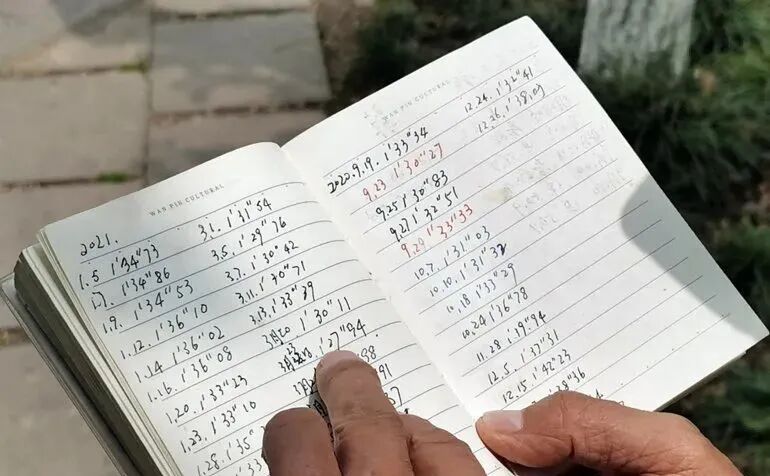 WAN PIN CULTURAL
2021.
1.5 1'34"73
1.7. 1'34"86
1.9. 1'34"53
1.12. 1'36"10
1.14. 1'36"02
1.16. 1'36"08
1.20. 1'33"23
1.23. 1'33"10
1.28. 1'35"
3.1. 1'31"54
3.5. 1'29"76
3.7. 1'30"42
3.11. 1'30"71
3.13. 1'33"
3月20 1'30"11
1'27"94
88
91
37
WAN PIN CULTURAL
2020.9.19. 1'33"34
9.23 1'30"27
9.25 1'30"83
9.27 1'32"51
9.29 1'23"33
10.7. 1'31"03
10.10. 1'31"32
10.18. 1'33"29
10.24 1'36"78
11.28. 1'29"94
12.5. 1'37"31
12.15. 1'42"23
28"36
12.24. 1'32"41
12.26. 1'38.09